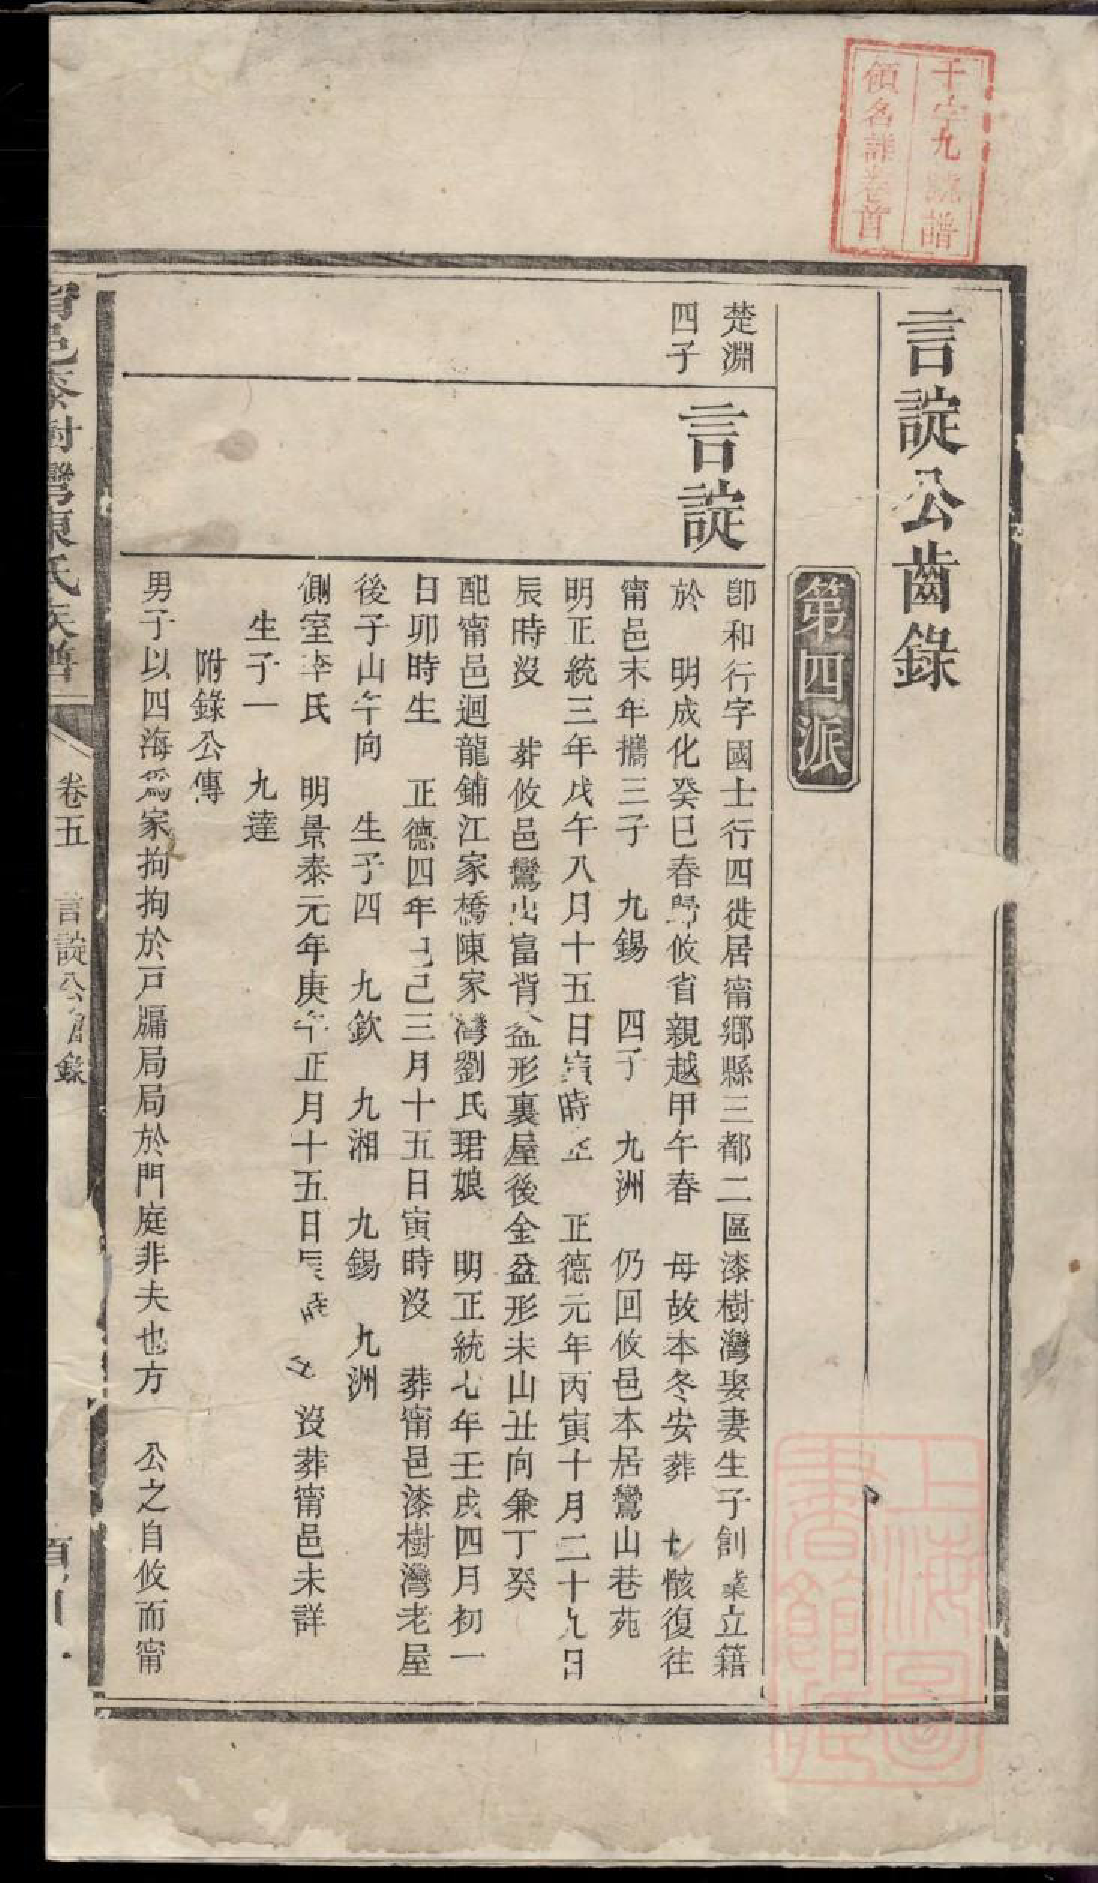 千字九號譜
領名詳卷首
言諚公齒錄
第四派
楚淵
四子
言諚
卽和行字國士行四徙居甯鄉縣三都二區漆樹灣娶妻生子創業立籍
於　明成化癸巳春歸攸省親越甲午春　母故本冬安葬　骸復往
甯邑末年攜三子　九錫　四子　九洲　仍回攸邑本居鸞山巷苑
明正統三年戊午八月十五日寅時生　正德元年丙寅十月二十九日
辰時沒　葬攸邑鸞山富背盆形裏屋後金盆形未山丑向兼丁癸
配甯邑迴龍鋪江家橋陳家灣劉氏珺娘　明正統七年壬戌四月初一
日卯時生　正德四年己巳三月十五日寅時沒　葬甯邑漆樹灣老屋
後子山午向　生子四　九欽　九湘　九錫　九洲
側室李氏　明景泰元年庚午正月十五日辰時　沒葬甯邑未詳
生子一　九達
附錄公傳
男子以四海爲家拘拘於戸牖局局於門庭非夫也方　公之自攸而甯
甯邑漆樹灣陳氏族譜
卷五　言諚公齒錄
上海圖書館藏